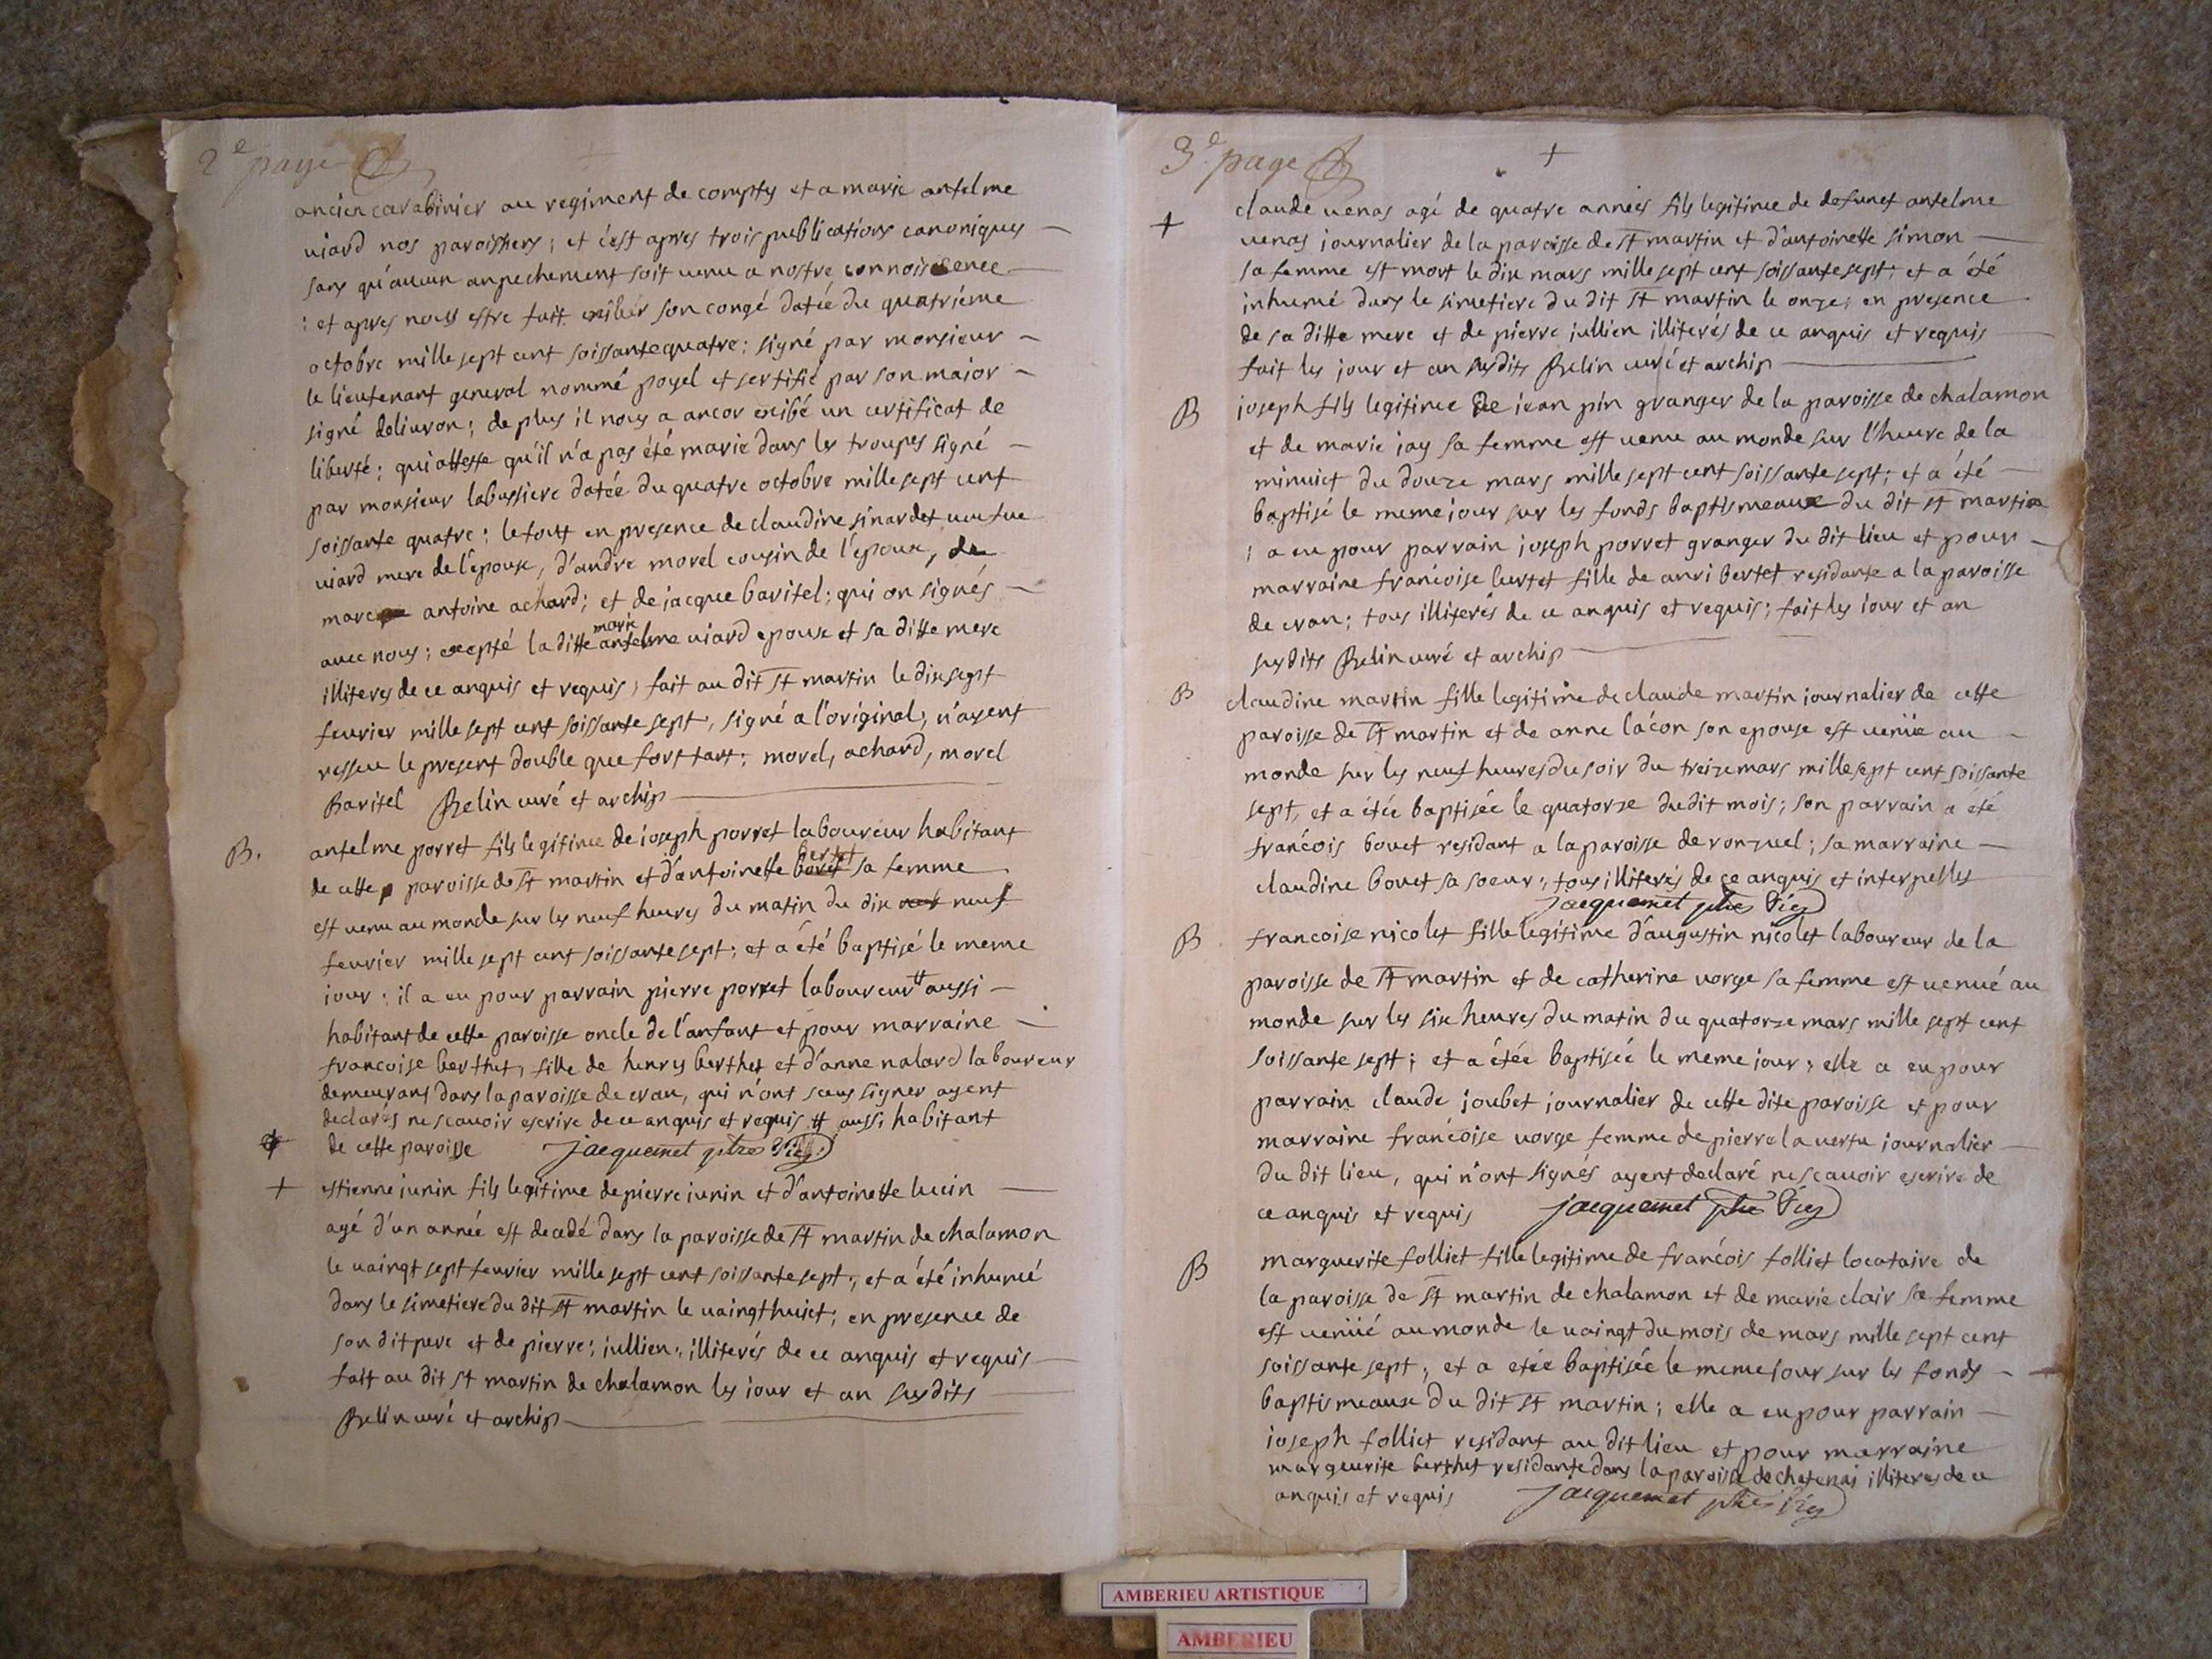 2e page
ancien carabinier au regiment de compty et a marie antelme
uiard nos paroissiens; et c'est apres trois publications canoniques
sans qu'aucun anpechement soit uenu a nostre connoissence
: et apres nous estre fait exiber son congé datée du quatriéme
octobre mille sept cent soissante quatre: signé par monsieur
le lieutenant general nommé poyel et sertifié par son maior
signé deliuron; de plus il nous a ancor exibé un certificat de
liberté; qui atteste qu'il n'a pas été marié dans les troupes signé
par monsieur labussiere datée du quatre octobre mille sept cent
soissante quatre: le tout en presence de claudine sinardet ueufue
uiard mere de l'epouse, d'andre morel cousin de l'epoux, de
marc antoine achard; et de jacque baritel; qui on signés
marie
auec nous; excepté la ditte antelme uiard epouse et sa ditte mere
illiteres de ce anquis et requis; fait au dit st martin le dix sept
feurier mille sept cent soissante sept, signé a l'original; n'ayent
resseu le present double que fort tart: morel, achard, morel
Baritel Belin curé et archip
B. antelme porret fils legitime de ioseph porret laboureur habitant
bertet
de cette p paroisse de st martin et d'antoinette sa femme
est uenu au monde sur les neuf heures du matin du dix neuf
feurier mille sept cent soissante sept; et a été baptisé le meme
iour: il a eu pour parrain pierre porret laboureur # aussi
habitant de cette paroisse oncle de l'anfant et pour marraine
francoise berthet, fille de henry berthet et d'anne nalard laboureur
demeurant dans la paroisse de cran, qui n'ont sceu signer ayent
declarés ne scauoir escrire de ce anquis et requis # aussi habitant
de cette paroisse jacquemet ptre Vic
+ estienne iunin fils legitime de pierre iunin et d'antoinette lucin
agé d'un année est decedé dans la paroisse de st martin de chalamon
le uaingt sept feurier mille sept cent soissante sept; et a été inhumé
dans le simetiere du dit st martin le uaingt huict; en presence de
son dit pere et de pierre; iullien; illiterés de ce anquis et requis
fait au dit st martin de chalamon les iour et an susdits
Belin curé et archip
3e page +
+ claude uenas agé de quatre années fils legitime de defunct antelme
uenas iournalier de la paroisse de st martin et d'antoinette simon
sa femme est mort le dix mars mille sept cent soissante sept; et a été
inhumé dans le simetiere du dit st martin le onze; en presence
de sa ditte mere et de pierre iullien illiterés de ce anquis et requis
fait les jour et an susdits Belin curé et archip
B ioseph fils legitime de iean pin granger de la paroisse de chalamon
et de marie iay sa femme est uenu au monde sur l'heure de la
minuict du douze mars mille sept cent soissante sept; et a été
baptisé le meme iour sur les fonds baptismeaux du dit st martin
; a eu pour parrain ioseph porret granger du dit lieu et pour
marraine francoise bertet fille de anri bertet residante a la paroisse
de cran; tous illiterés de ce anquis et requis; fait les iour et an
susdits Belin curé et archip
B claudine martin fille legitime de claude martin iournalier de cette
paroisse de st martin et de anne lácon son epouse est uenüe au
monde sur les neuf heures du soir du treize mars mille sept cent soissante
sept, et a étée baptisée le quatorze du dit mois; son parrain a été
francois bouet residant a la paroisse de ronzuel; sa marraine
claudine bouet sa soeur; tous illiterés de ce anquis et interpellés
jacquemet ptre Vic
B francoise nicolet fille legitime d'augustin nicolet laboureur de la
paroisse de st martin et de catherine uorge sa femme est uenué au
monde sur les six heures du matin du quatorze mars mille sept cent
soissante sept; et a étée baptisée le meme jour; elle a eu pour
parrain claude joubet journalier de cette dite paroisse et pour
marraine francoise uorge femme de pierre la uertu iournalier
du dit lieu, qui n'ont signés ayent declaré ne scauoir escrire de
ce anquis et requis jacquemet ptre Vic
B marguerite folliet fille legitime de francois folliet locataire de
la paroisse de st martin de chalamon et de marie clair sa femme
est uenüé au monde le uaingt du mois de mars mille sept cent
soissante sept; et a etée baptisée le meme jour sur les fonds
baptismeaux du dit st martin; elle a eu pour parrain
ioseph folliet residant au dit lieu et pour marraine
margeurite berthet residante dans la paroisse de chatenai illiteres de ce
anquis et requis jacquemet ptre Vic
AMBERIEU ARTISTIQUE
AMBERIEU